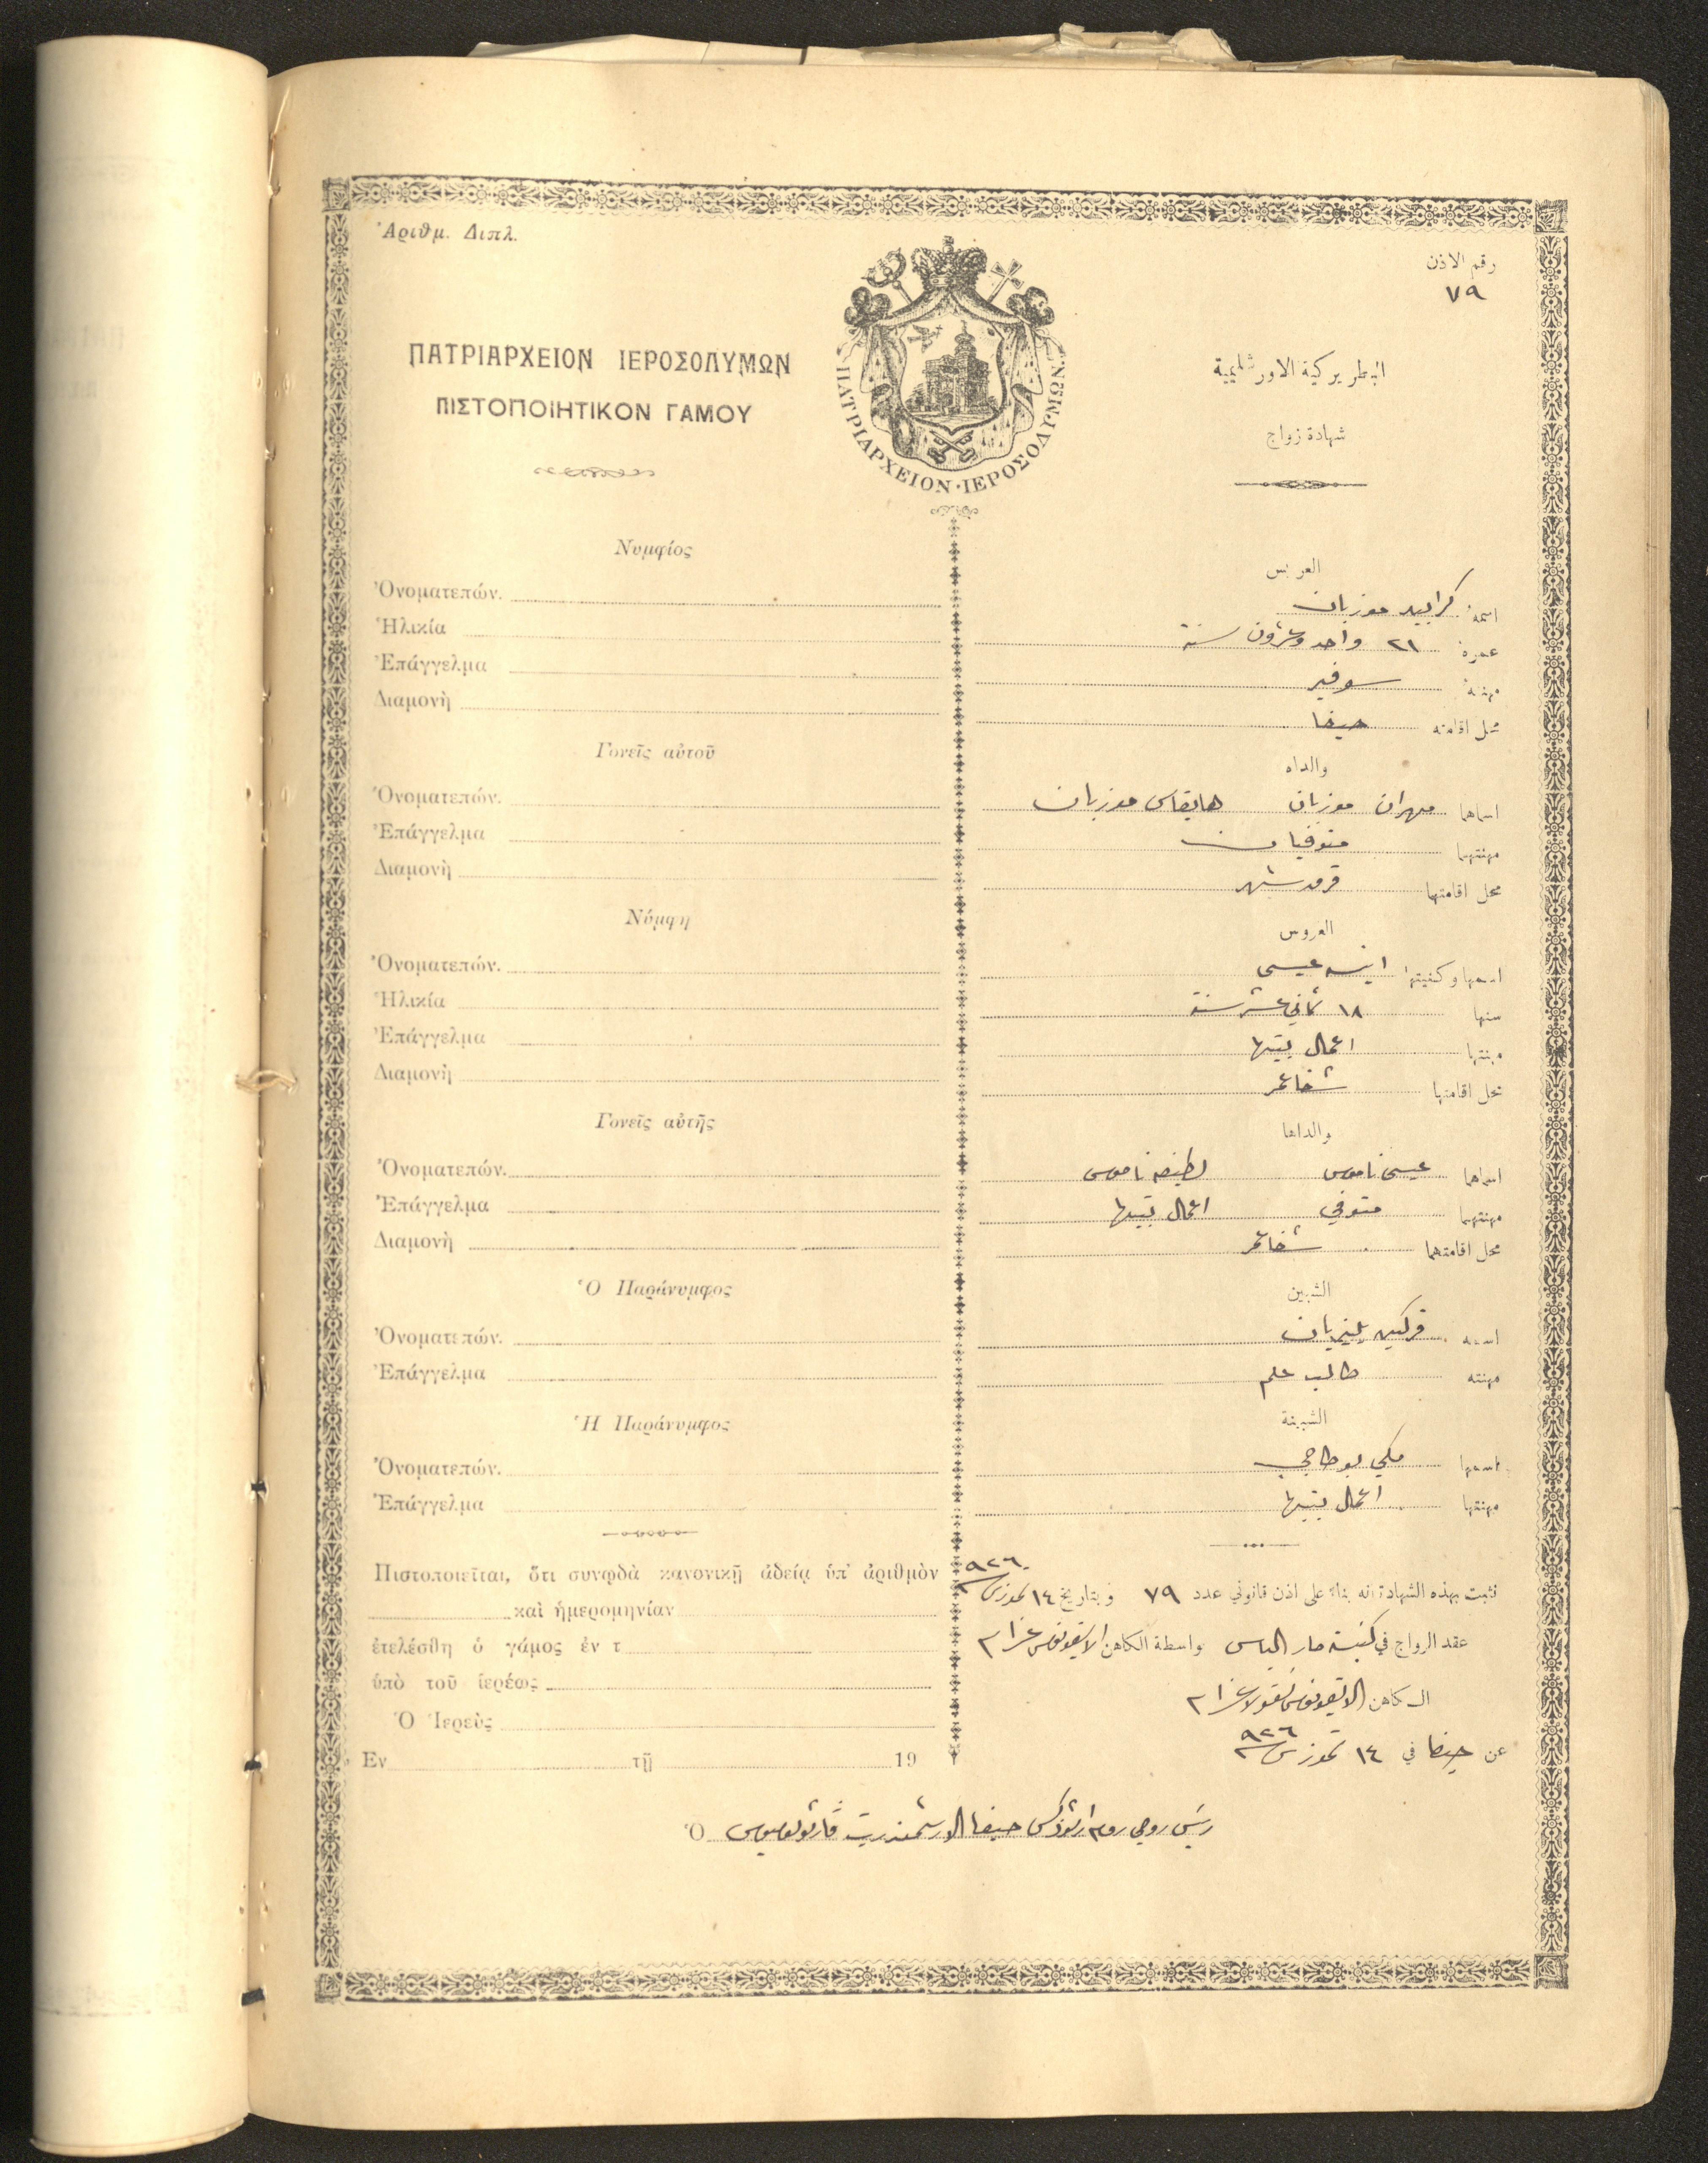 Ἀριθμ. Διπλ.
رقم الاذن
٧٩
ΠΑΤΡΙΑΡΧΕΙΟΝ ΙΕΡΟΣΟΛΥΜΩΝ
ΠΙΣΤΟΠΟΙΗΤΙΚΟΝ ΓΑΜΟΥ
ΠΑΤΡΙΑΡΧΕΙΟΝ·ΙΕΡΟΣΟΛΥΜΩΝ.
البطريركية الاورشليمية
شهادة زواج
Νυμφίος
Ὀνοματεπών.
Ἡλικία
Ἐπάγγελμα
Διαμονὴ
Γονεῖς αὐτοῦ
Ὀνοματεπών.
Ἐπάγγελμα
Διαμονὴ
Νύμφη
Ὀνοματεπών.
Ἡλικία
Ἐπάγγελμα
Διαμονὴ
Γονεῖς αὐτῆς
Ὀνοματεπών.
Ἐπάγγελμα
Διαμονὴ
Ὁ Παράνυμφος
Ὀνοματεπών.
Ἐπάγγελμα
Ἡ Παράνυμφος
Ὀνοματεπών.
Ἐπάγγελμα
Πιστοποιεῖται, ὅτι συνῳδὰ κανονικῇ ἀδείᾳ ὑπ' ἀριθμὸν
καὶ ἡμερομηνίαν
ἐτελέσθη ὁ γάμος ἐν τ
ὑπὸ τοῦ ἱερέως
Ὁ Ἱερεὺς
Εν τῇ 19
العريس
اسمه كرابيد موزيان
عمره ٢١ واحد وعشرون سنة
مهنته سوفير
محل اقامته حيفا
والداه
اسماهما مهران موزيان موزيان
مهنتهما متوفيان
محل اقامتهما
العروس
اسمها وكنيتها انيسه عيسى
سنها ١٨ ثماني عشر سنة
مهنتها اعمال بيتها
محل اقامتها شفاعمر
والداها
اسماهما عيسى ناموس لطيفه ناموس
مهنتهما متوفي اعمال بيتها
محل اقامتهما شفاعمر
الشبين
اسمه
مهنته طالب علم
الشبينة
اسمها ملكي بوطاجي
مهنتها اعمال بيتها
نثبت بهذه الشهادة انه بناء على اذن قانوني عدد ٧٩ وبتاريخ ١٤ تموز سنة ٩٢٦
عقد الزواج في كنيسة مار الياس بواسطة الكاهن الايقونوموس
الكاهن الايقونوموس نقولا
عن حيفا في ١٤ تموز سنة ٩٢٦
Ὁ رئيس روحي روم ارثوذكس حيفا الارشمندريت